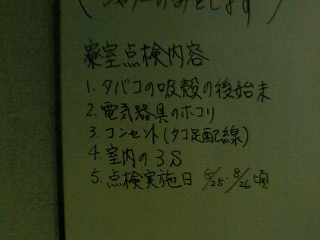 寮室点検内容
1. タバコの吸殻の後始末
2. 電気器具のホコリ
3. コンセント(タコ足配線)
4. 室内の3S
5. 点検実施日 8/25・8/26頃